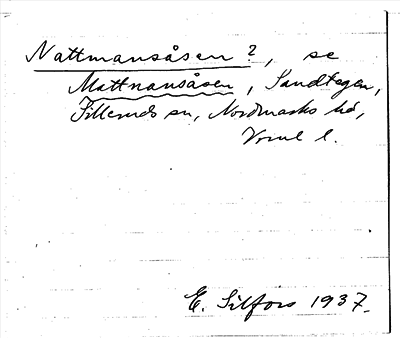 Nattmansåsen?, se
Mattnansåsen, Sandtegen,
Silleruds sn, Nordmarks hd,
Vrml l.
E. Silfors 1937.